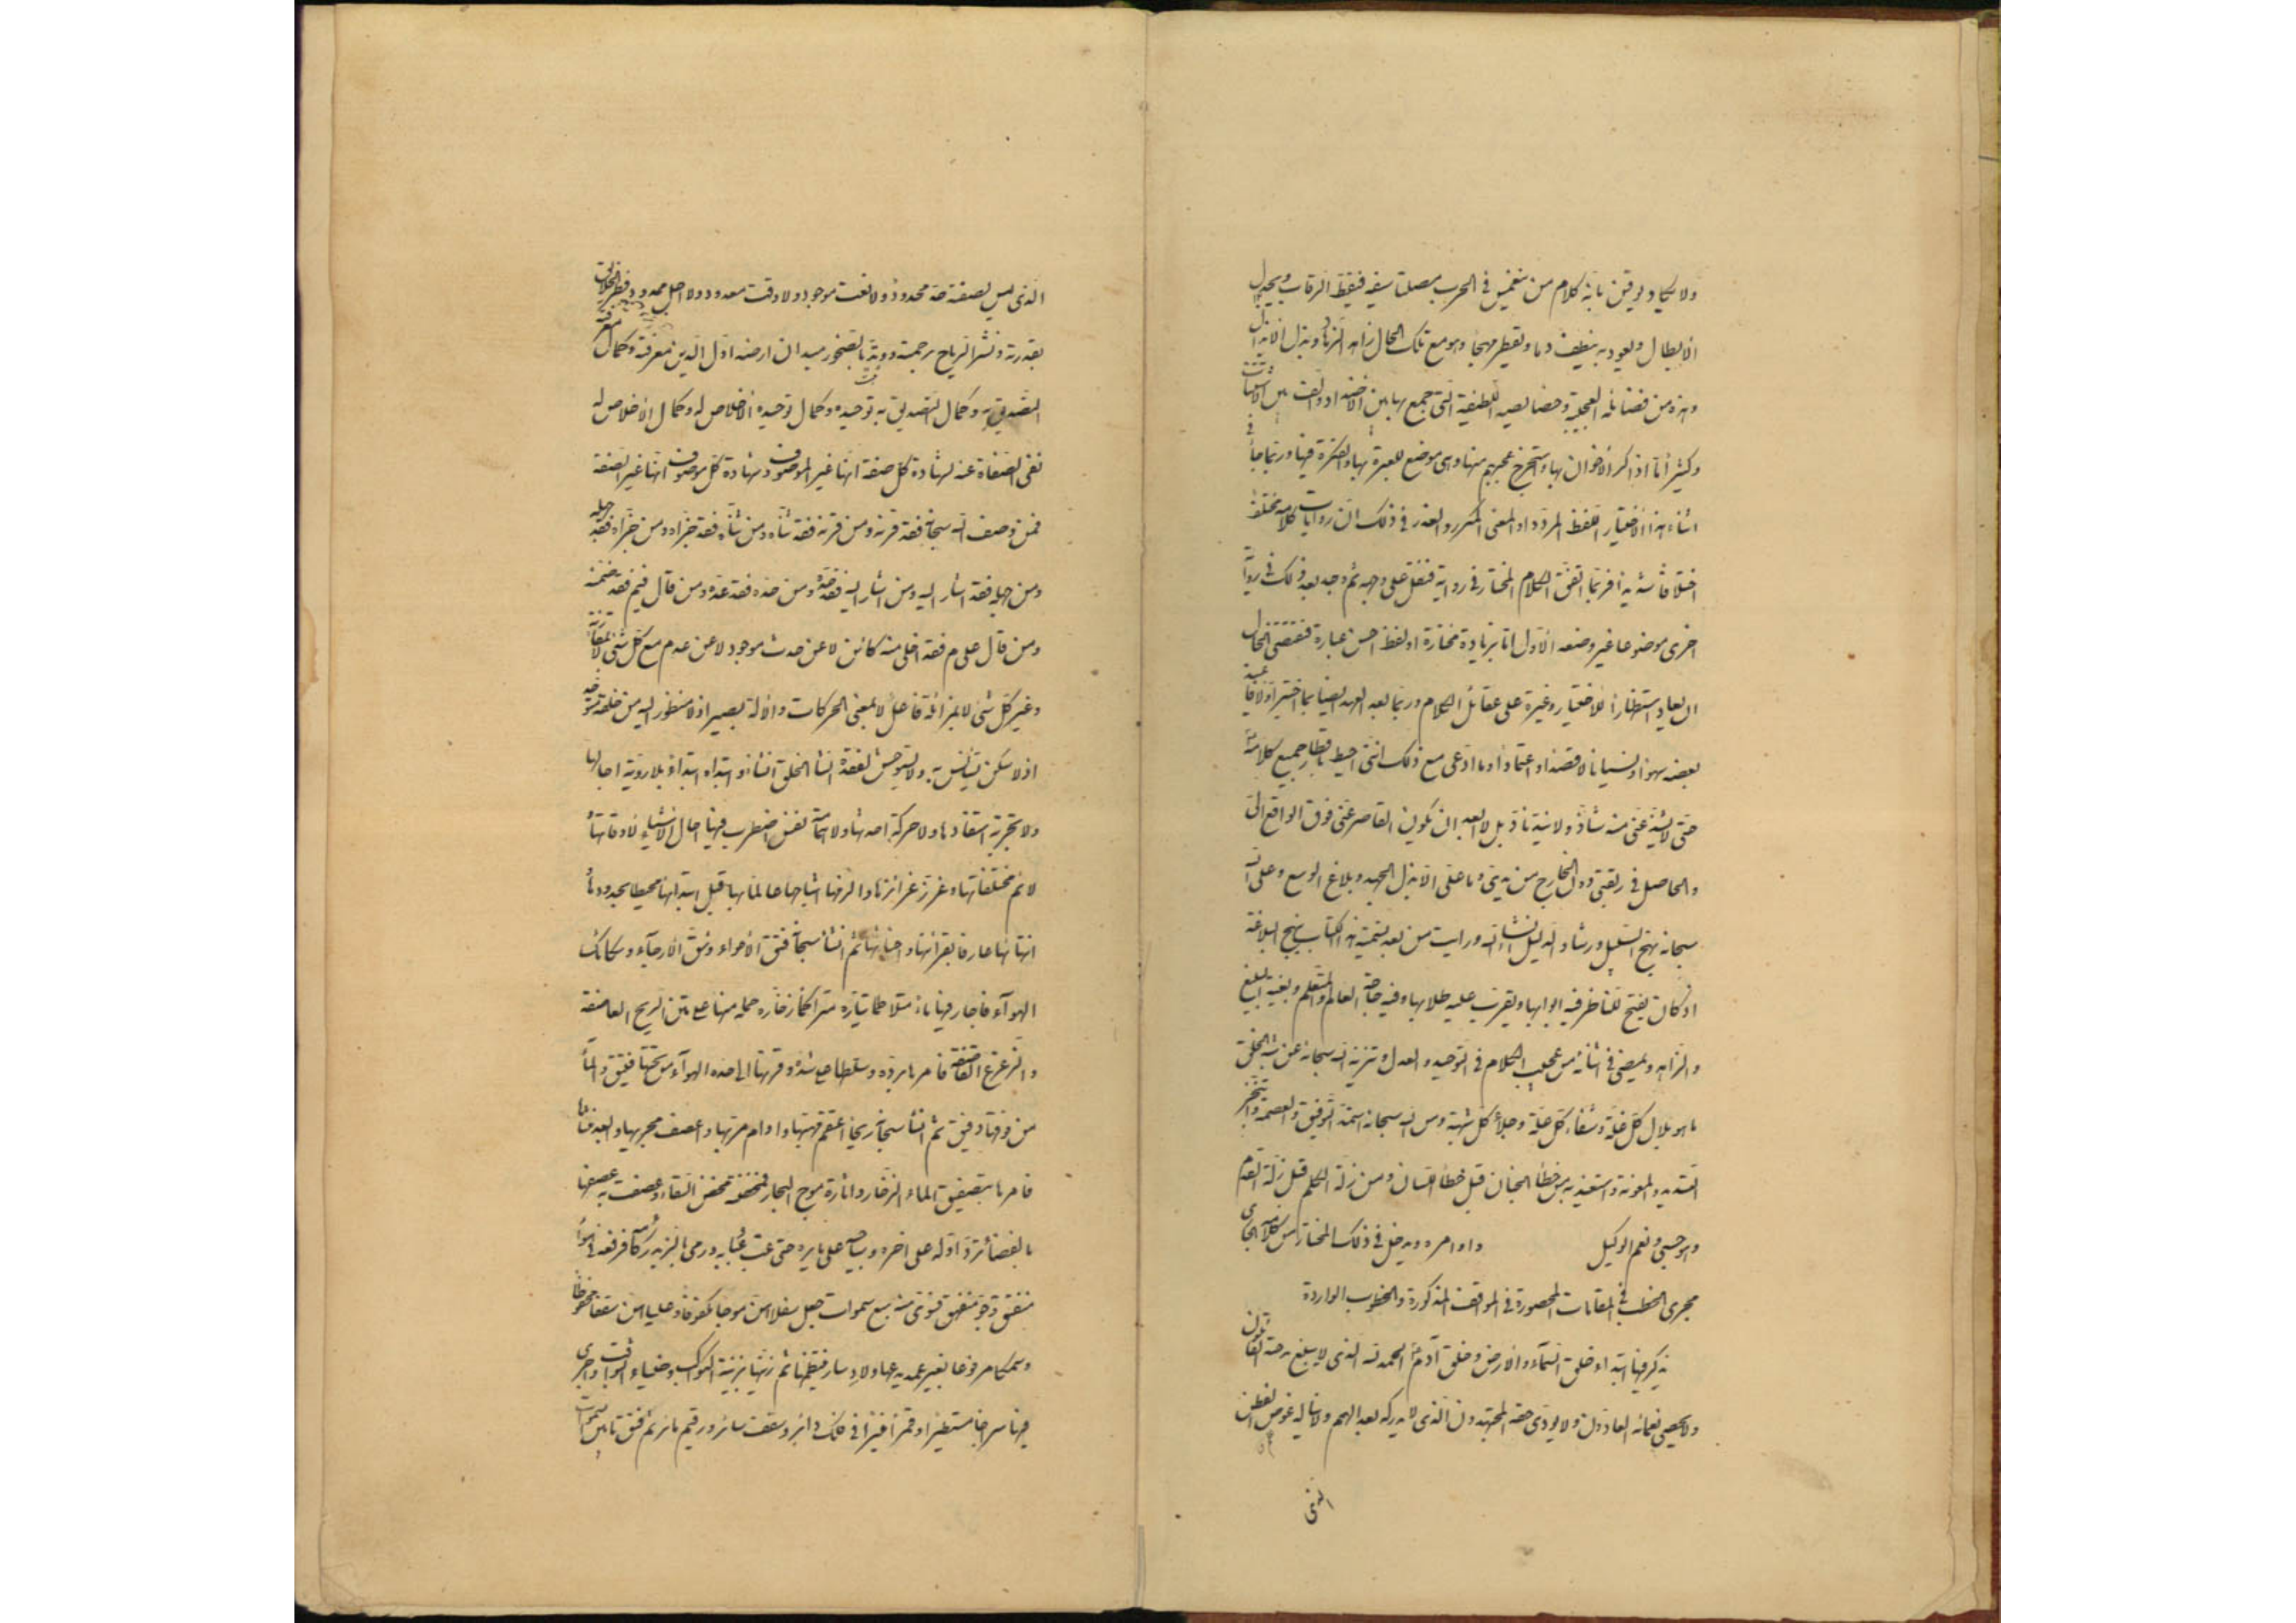 ولا يكاد يوقن بانه كلام من ينغمس في الحرب مصلتا سيفه فيقط الرقاب ويجدل
الابطال ويعود به ينطف دما ويقطر مهجا وهو مع تلك الحال زاهد الزهاد وبدل الابدال
وهذه من فضائله العجيبة وخصايصه اللطيفة التي جمع بها بين الاضداد والف بين الاشتات
وكثيرا ما اذاكر الاخوان بها واستخرج عجبهم منها وهي موضع للعبرة بها والفكرة فيها وربما جاء في
اثناء هذا الاختيار اللفظ المردد او المعنى المكرر والعذر في ذلك ان روايات كلامه تختلف
اختلافا شديدا فربما اتفق الكلام المختار في رواية فنقل على وجهه ثم وجد بعد ذلك في رواية
اخرى موضوعا غير وضعه الاول اما بزيادة مختارة او لفظ احسن عبارة فتقتضي الحال
ان يعاد استظهارا للاختيار وغيرة على عقائل الكلام وربما بعد العهد ايضا بما اختير اولا فاعيد
بعضه سهوا ونسيانا لا قصدا واعتمادا وما ادعي مع ذلك انني احيط باقطار جميع كلامه
حتى لا يشذ عني منه شاذ ولا يند ناد بل لا ابعد ان يكون القاصر عني فوق الواقع الي
والحاصل في ربقتي دون الخارج من يدي وما علي الا بذل الجهد وبلاغ الوسع وعلى الله
سبحانه نهج السبيل ورشاد الدليل انشاء الله ورايت من بعد تسمية هذا الكتاب بنهج البلاغة
اذ كان يفتح للناظر فيه ابوابها ويقرب عليه طلابها وفيه حاجة العالم والمتعلم وبغية البليغ
والزاهد ويمضي في اثنائه من عجيب الكلام في التوحيد والعدل وتنزيه الله سبحانه عن شبه الخلق
ما هو بلال كل غلة وشفاء كل علة وجلاء كل شبهة ومن الله سبحانه استمد التوفيق والعصمة واتنجز
التسديد والمعونة واستعيذه من خطأ الجنان قبل خطأ اللسان ومن زلة الكلم قبل زلة القدم
وهو حسبي ونعم الوكيل واوامره ويدخل في ذلك المختار من كلامه الجاري
مجرى الخطب في المقامات المحصورة والمواقف المذكورة والخطوب الواردة
يذكر فيها ابتداء خلق السماء والارض وخلق آدم الحمد لله الذي لا يبلغ مدحته القائلون
ولا يحصي نعمائه العادون ولا يؤدي حقه المجتهدون الذي لا يدركه بعد الهمم ولا يناله غوص الفطن
الذي
الذي ليس لصفته حد محدود ولا نعت موجود ولا وقت معدود ولا اجل ممدود فطر الخلائق
بقدرته ونشر الرياح برحمته ووتد بالصخور ميدان ارضه اول الدين معرفته وكمال معرفته
التصديق به وكمال التصديق به توحيده وكمال توحيده الاخلاص له وكمال الاخلاص له
نفي الصفات عنه لشهادة كل صفة انها غير الموصوف وشهادة كل موصوف انها غير الصفة
فمن وصف الله سبحانه فقد قرنه ومن قرنه فقد ثناه ومن ثناه فقد جزاه ومن جزاه فقد جهله
ومن جهله فقد اشار اليه ومن اشار اليه فقد حده ومن حده فقد عده ومن قال فيم فقد ضمنه
ومن قال على م فقد اخلى منه كائن لا عن حدث موجود لا عن عدم مع كل شئ لا بمقارنة
وغير كل شئ لا بمزائلة فاعل لا بمعنى الحركات والالة بصير اذ لا منظور اليه من خلقه متوحد
اذ لا سكن يستأنس به ولا يستوحش لفقده انشأ الخلق انشاء وابتداه ابتداء بلا روية اجالها
ولا تجربة استفادها ولا حركة احدثها ولا همامة نفس اضطرب فيها احال الاشياء لاوقاتها
ولائم مختلفاتها وغرز غرائزها والزمها اشباحها عالما بها قبل ابتدائها محيطا بحدودها
انتهائها عارفا بقرائنها واحنائها ثم انشأ سبحانه فتق الاجواء وشق الارجاء وسكائك
الهواء فاجار فيها ماء متلاطما تياره متراكما زخاره حمله منها على متن الريح العاصفة
والزعزع القاصفة فامرها برده وسلطها على شده وقرنها الى حده الهواء من تحتها فتيق والماء
من فوقها دفيق ثم انشأ سبحانه ريحا اعتقم مهبها وادام مربها واعصف مجريها وابعد منشاها
فامرها بتصفيق الماء الزخار واثارة موج البحار فمخضته مخض السقاء وعصفت به عصفها
بالفضاء ترد اوله على اخره وساجيه على مايره حتى عب عبابه ورمى بالزبد ركامه فرفعه في هواء
منفتق وجو منفهق فسوى منه سبع سموات جعل سفلاهن موجا مكفوفا وعلياهن سقفا محفوظا
وسمكا مرفوعا بغير عمد يدعمها ولا دسار ينظمها ثم زينها بزينة الكواكب وضياء الثواقب واجرى
فيها سراجا مستطيرا وقمرا منيرا في فلك دائر وسقف سائر ورقيم مائر ثم فتق ما بين السموات